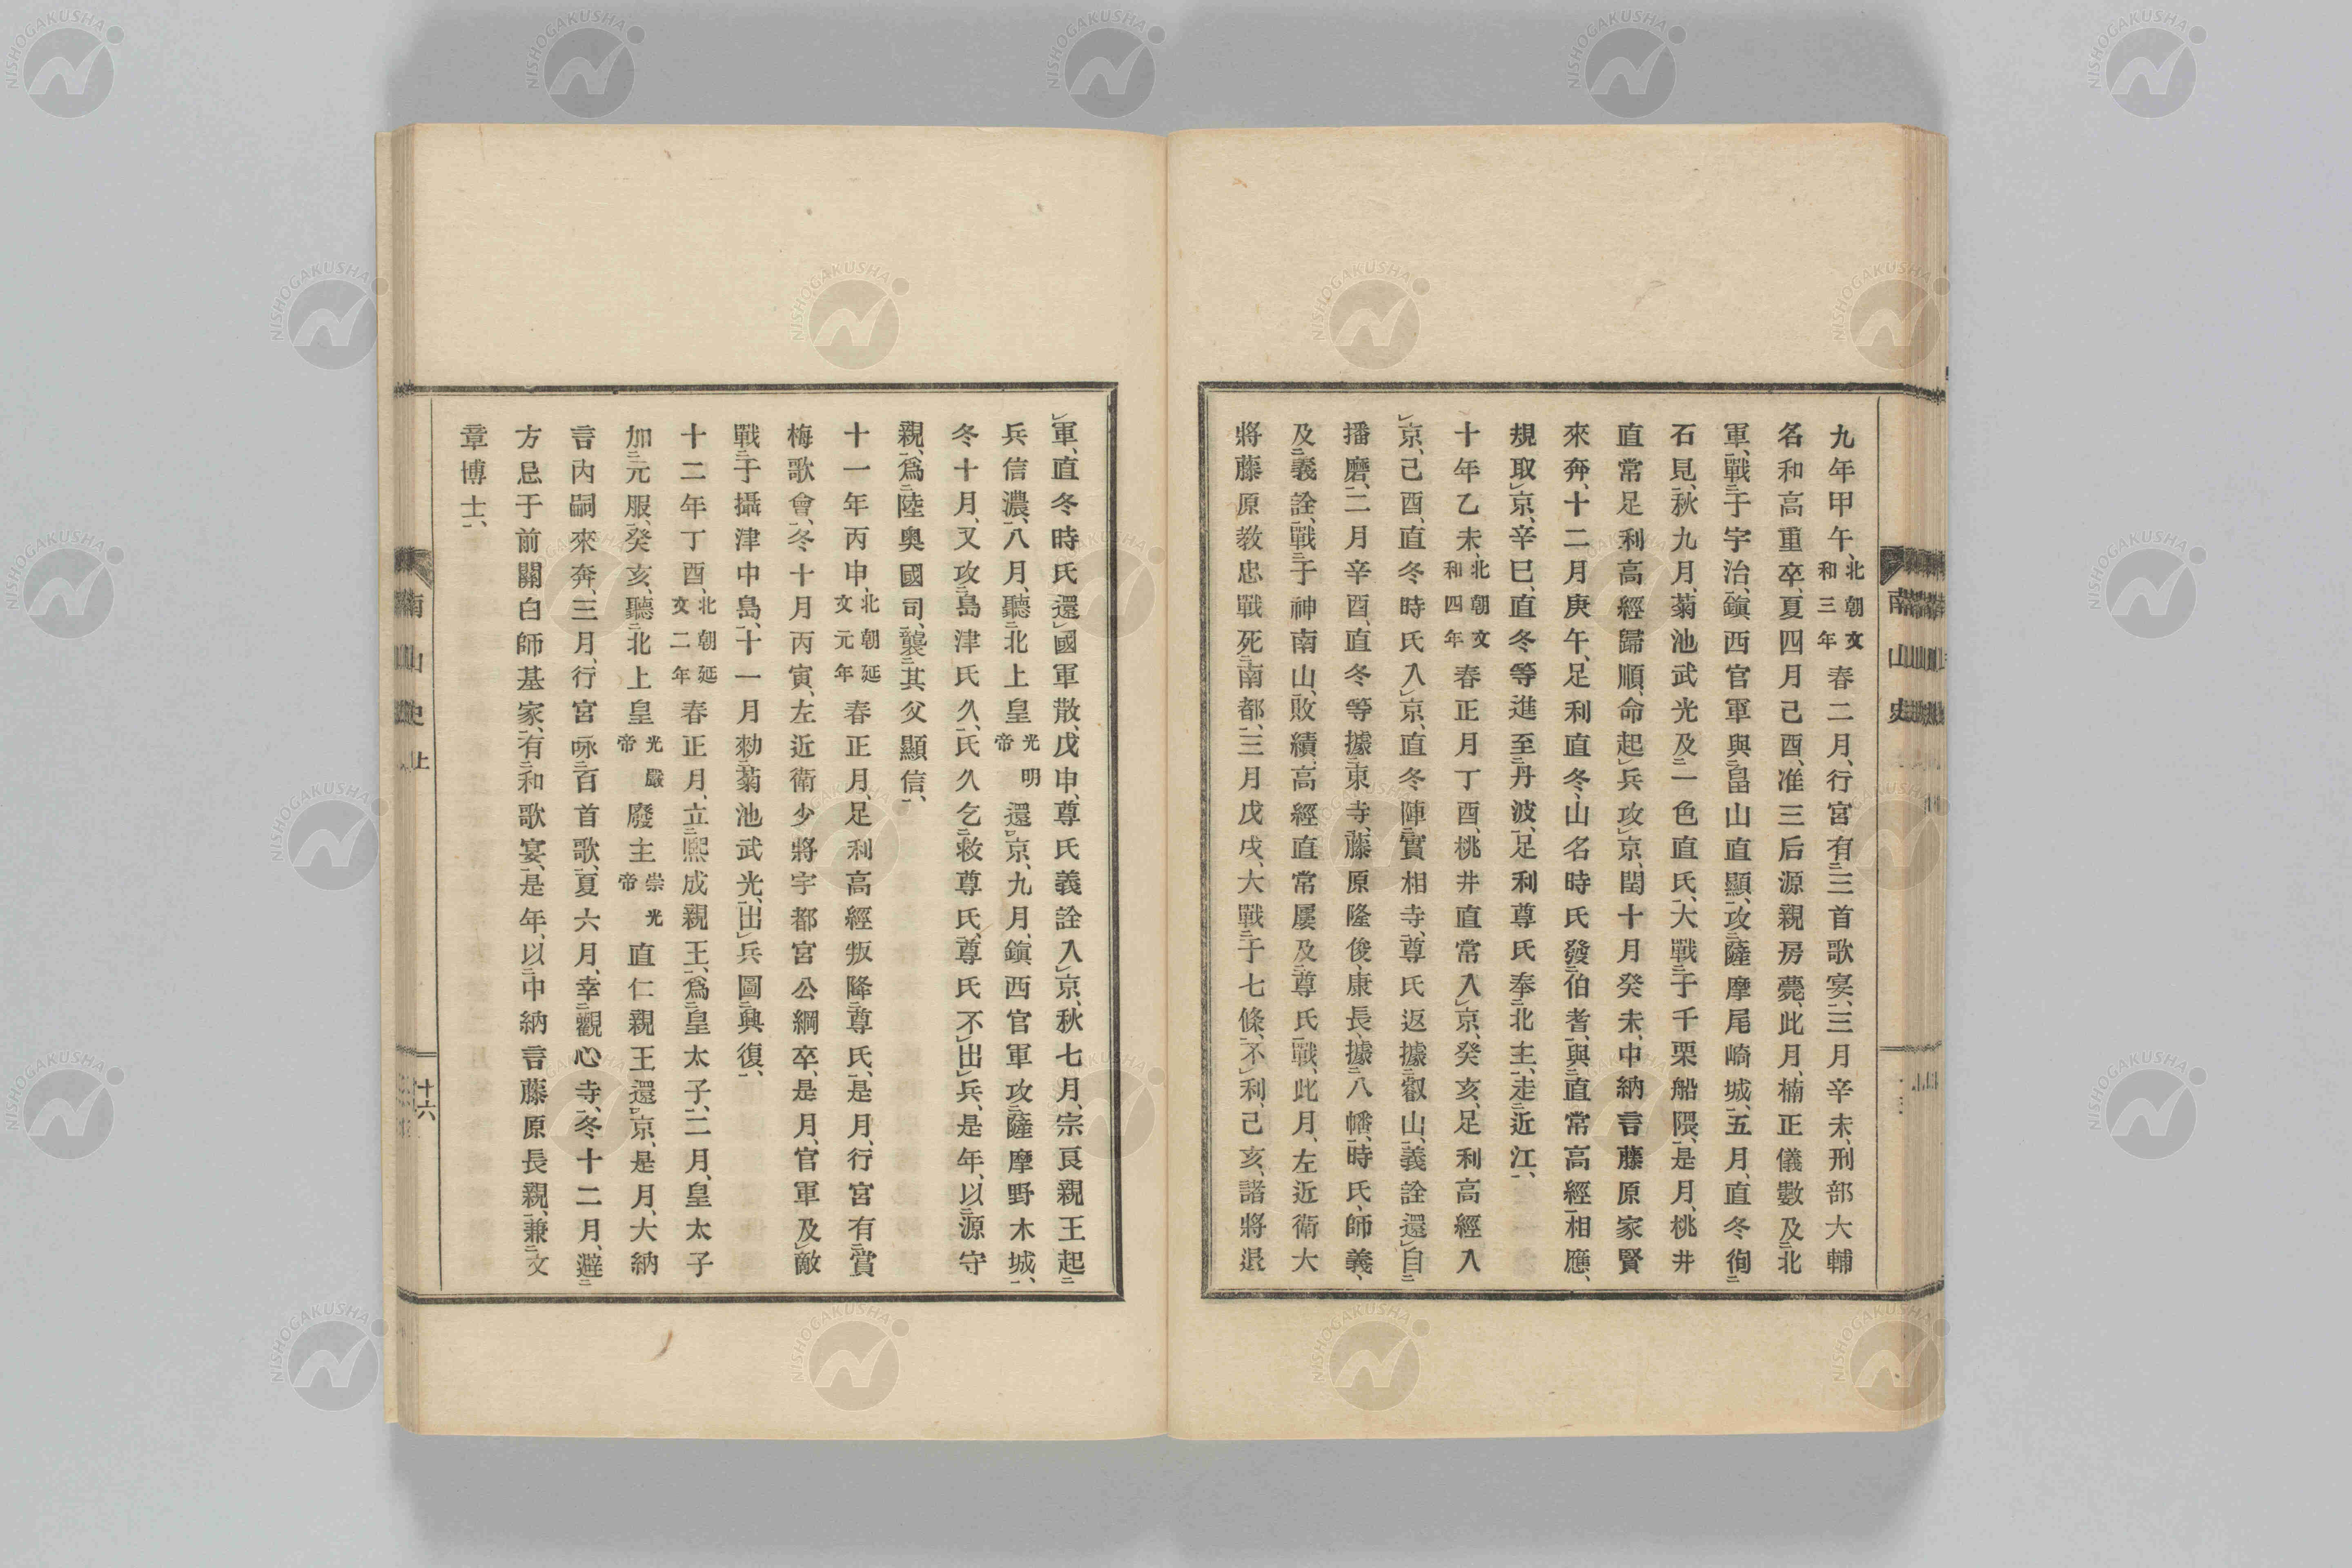 九年甲午、北朝文和三年春二月、行宮有三首歌宴、三月辛未、刑部大輔
名和高重卒、夏四月己酉、准三后源親房薨、此月、楠正儀數及北
軍、戰于宇治、鎭西官軍與畠山直顯、攻薩摩尾崎城、五月、直冬徇
石見、秋九月、菊池武光及一色直氏、大戰于千栗船隈、是月、桃井
直常足利高經歸順、命起兵攻京、閏十月癸未、中納言藤原家賢
來奔、十二月庚午、足利直冬、山名時氏發伯耆、與直常高經相應、
規取京、辛巳、直冬等進至丹波、足利尊氏奉北主、走近江、
十年乙未、北朝文和四年春正月丁酉、桃井直常入京、癸亥、足利高經入
京、己酉、直冬時氏入京、直冬陣實相寺、尊氏返據叡山、義詮還自
播磨、二月辛酉、直冬等據東寺、藤原隆俊、康長、據八幡、時氏、師義、
及義詮、戰于神南山、敗績、高經直常屢及尊氏戰、此月、左近衛大
將藤原教忠戰死南都、三月戊戌、大戰于七條、不利、己亥、諸將退
軍、直冬時氏還國軍散、戊申、尊氏義詮入京、秋七月、宗良親王起
兵信濃、八月、聽北上皇光明帝還京、九月、鎭西官軍攻薩摩野木城、
冬十月、又攻島津氏久、氏久乞救尊氏、尊氏不出兵、是年、以源守
親、爲陸奥國司、襲其父顯信、
十一年丙申、北朝延文元年春正月、足利高經叛降尊氏、是月、行宮有賞
梅歌會、冬十月丙寅、左近衛少將宇都宮公綱卒、是月、官軍及敵
戰于攝津中島、十一月勅菊池武光、出兵圖興復、
十二年丁酉、北朝延文二年春正月、立熙成親王、爲皇太子、二月、皇太子
加元服、癸亥、聽北上皇光嚴帝廢主崇光帝直仁親王還京、是月、大納
言內嗣來奔、三月、行宮咏百首歌、夏六月、幸觀心寺、冬十二月、避
方忌于前關白師基家、有和歌宴、是年、以中納言藤原長親、兼文
章博士、
南山史 上
十六